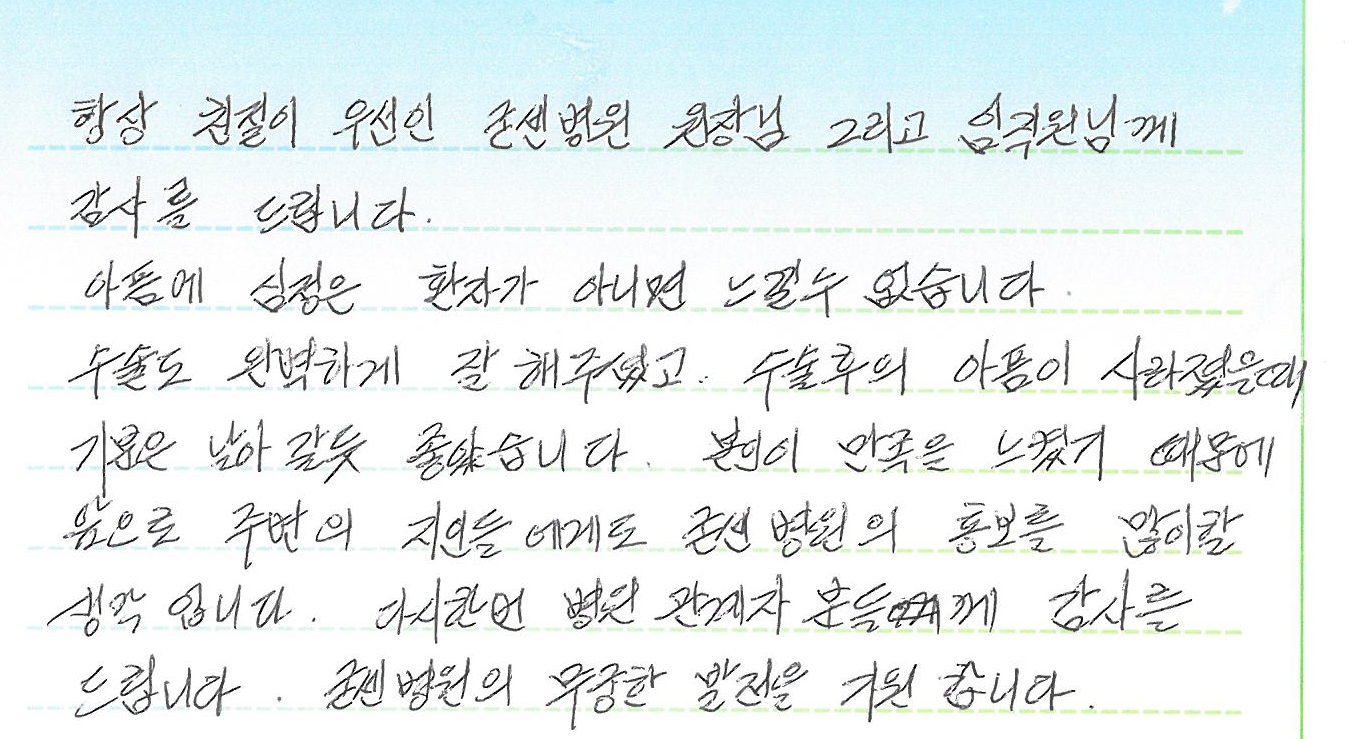 항상 친절이 우선인 굳센병원 원장님 그리고 임직원님께
감사를 드립니다.
아픔에 심정은 환자가 아니면 느낄수 없습니다.
수술도 완벽하게 잘 해주셨고. 수술후의 아픔이 사라졌을때
기분은 날아 갈듯 좋았습니다. 본인이 만족을 느꼈기 때문에
앞으로 주변의 지인들에게도 굳센병원의 홍보를 많이할
생각 입니다. 다시한번 병원 관계자 분들께 감사를
드립니다. 굳센병원의 무궁한 발전을 기원 합니다.